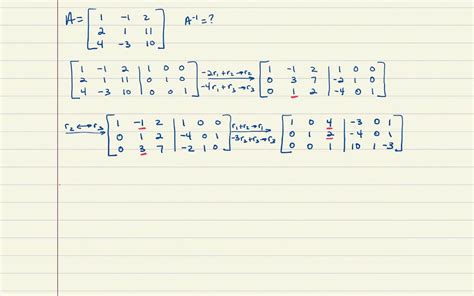 A = [ 1 -1 2 ; 2 1 11 ; 4 -3 10 ] A⁻¹ = ?
[ 1 -1 2 | 1 0 0 ; 2 1 11 | 0 1 0 ; 4 -3 10 | 0 0 1 ] -2r₁+r₂→r₂ -4r₁+r₃→r₃ [ 1 -1 2 | 1 0 0 ; 0 3 7 | -2 1 0 ; 0 1 2 | -4 0 1 ]
r₂↔r₃ [ 1 -1 2 | 1 0 0 ; 0 1 2 | -4 0 1 ; 0 3 7 | -2 1 0 ] r₁+r₂→r₁ -3r₂+r₃→r₃ [ 1 0 4 | -3 0 1 ; 0 1 2 | -4 0 1 ; 0 0 1 | 10 1 -3 ]